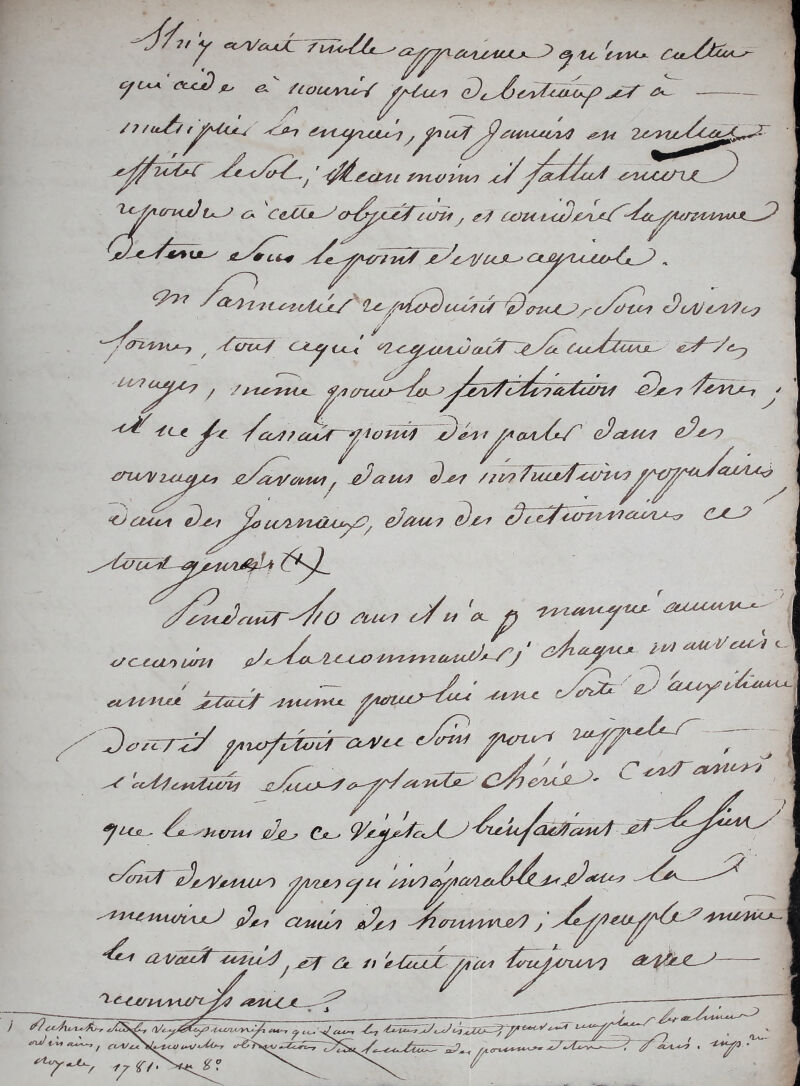 Il n'y avait nulle apparence qu'une culture
qui aide à nourrir plus de bestiaux et à
multiplier les engrais, put jamais en resultat
effriter le sol; Neanmoins il fallut encore
repondre à cette objection, et considérer la pomme
de terre sous le point de vue agricole.
M Parmentier reproduisit donc, sous diverses
formes, tout ce qui regardait sa culture et ses
usages, même pour la fertilisation des terres;
il ne se lassait point d'en parler dans des
ouvrages savans, dans des instructions populaires,
dans des journaux, dans des dictionnaires de
tout genre. (1)
Pendant 40 ans il n'a p manqué aucune
occasion de la recommander; chaque mauvaise
année était même pour lui une sorte d'auxiliaire
dont il profitoit avec soin pour rappeler
l'attention sur sa plante chérie. C'est ainsi
que le nom de ce végétal bienfaisant et le sien
sont devenus presqu'inséparables dans la
memoire des amis des hommes; le peuple même
les avait unis, et ce n'était pas toujours avec
reconnoissance.
1 Recherches sur les vegetaux nourrissans qui dans les tems de disette, peuvent remplacer les alimens
ordinaires, avec de nouvelles observations sur la culture des pommes de terre. Paris. imp.rie
Royale, 1781. in 8°